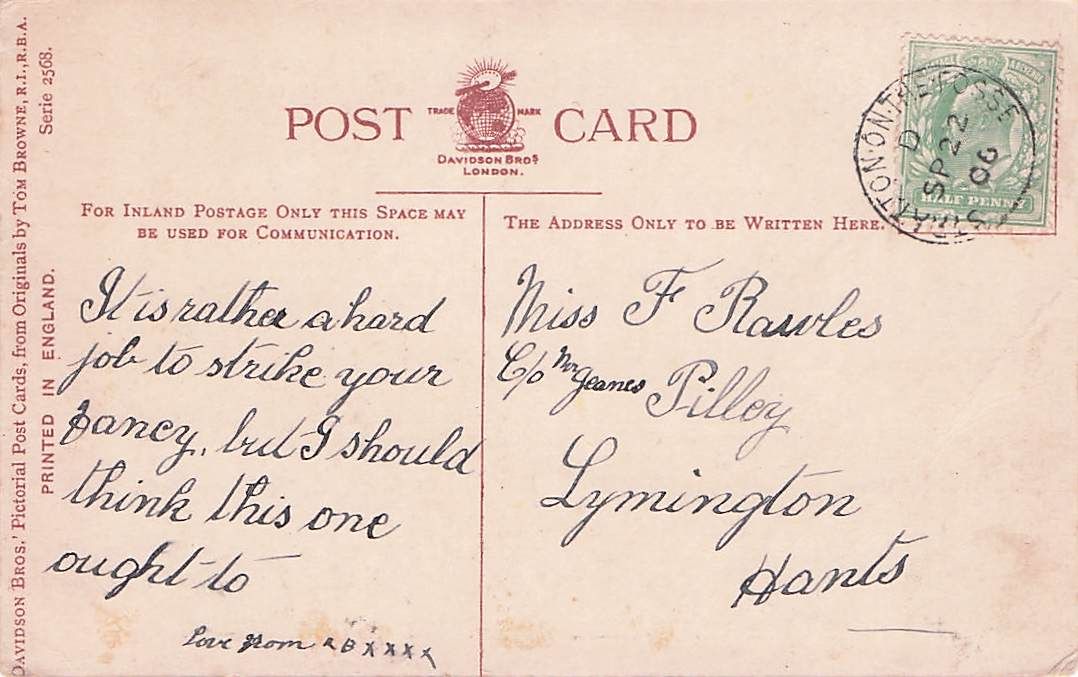 DAVIDSON BROS.' Pictorial Post Cards, from Originals by TOM BROWNE, R.I., R.B.A.
Serie 2568.
PRINTED IN ENGLAND.
POST CARD
TRADE MARK
DAVIDSON BROS
LONDON.
FOR INLAND POSTAGE ONLY THIS SPACE MAY
BE USED FOR COMMUNICATION.
THE ADDRESS ONLY TO BE WRITTEN HERE.
STRATTON·ON·THE·FOSSE
D
SP 22
06
HALF PENNY
It is rather a hard
job to strike your
fancy, but I should
think this one
ought to
Love from B x x x x
Miss F Rawles
C/o Mr Jeanes Pilley
Lymington
Hants